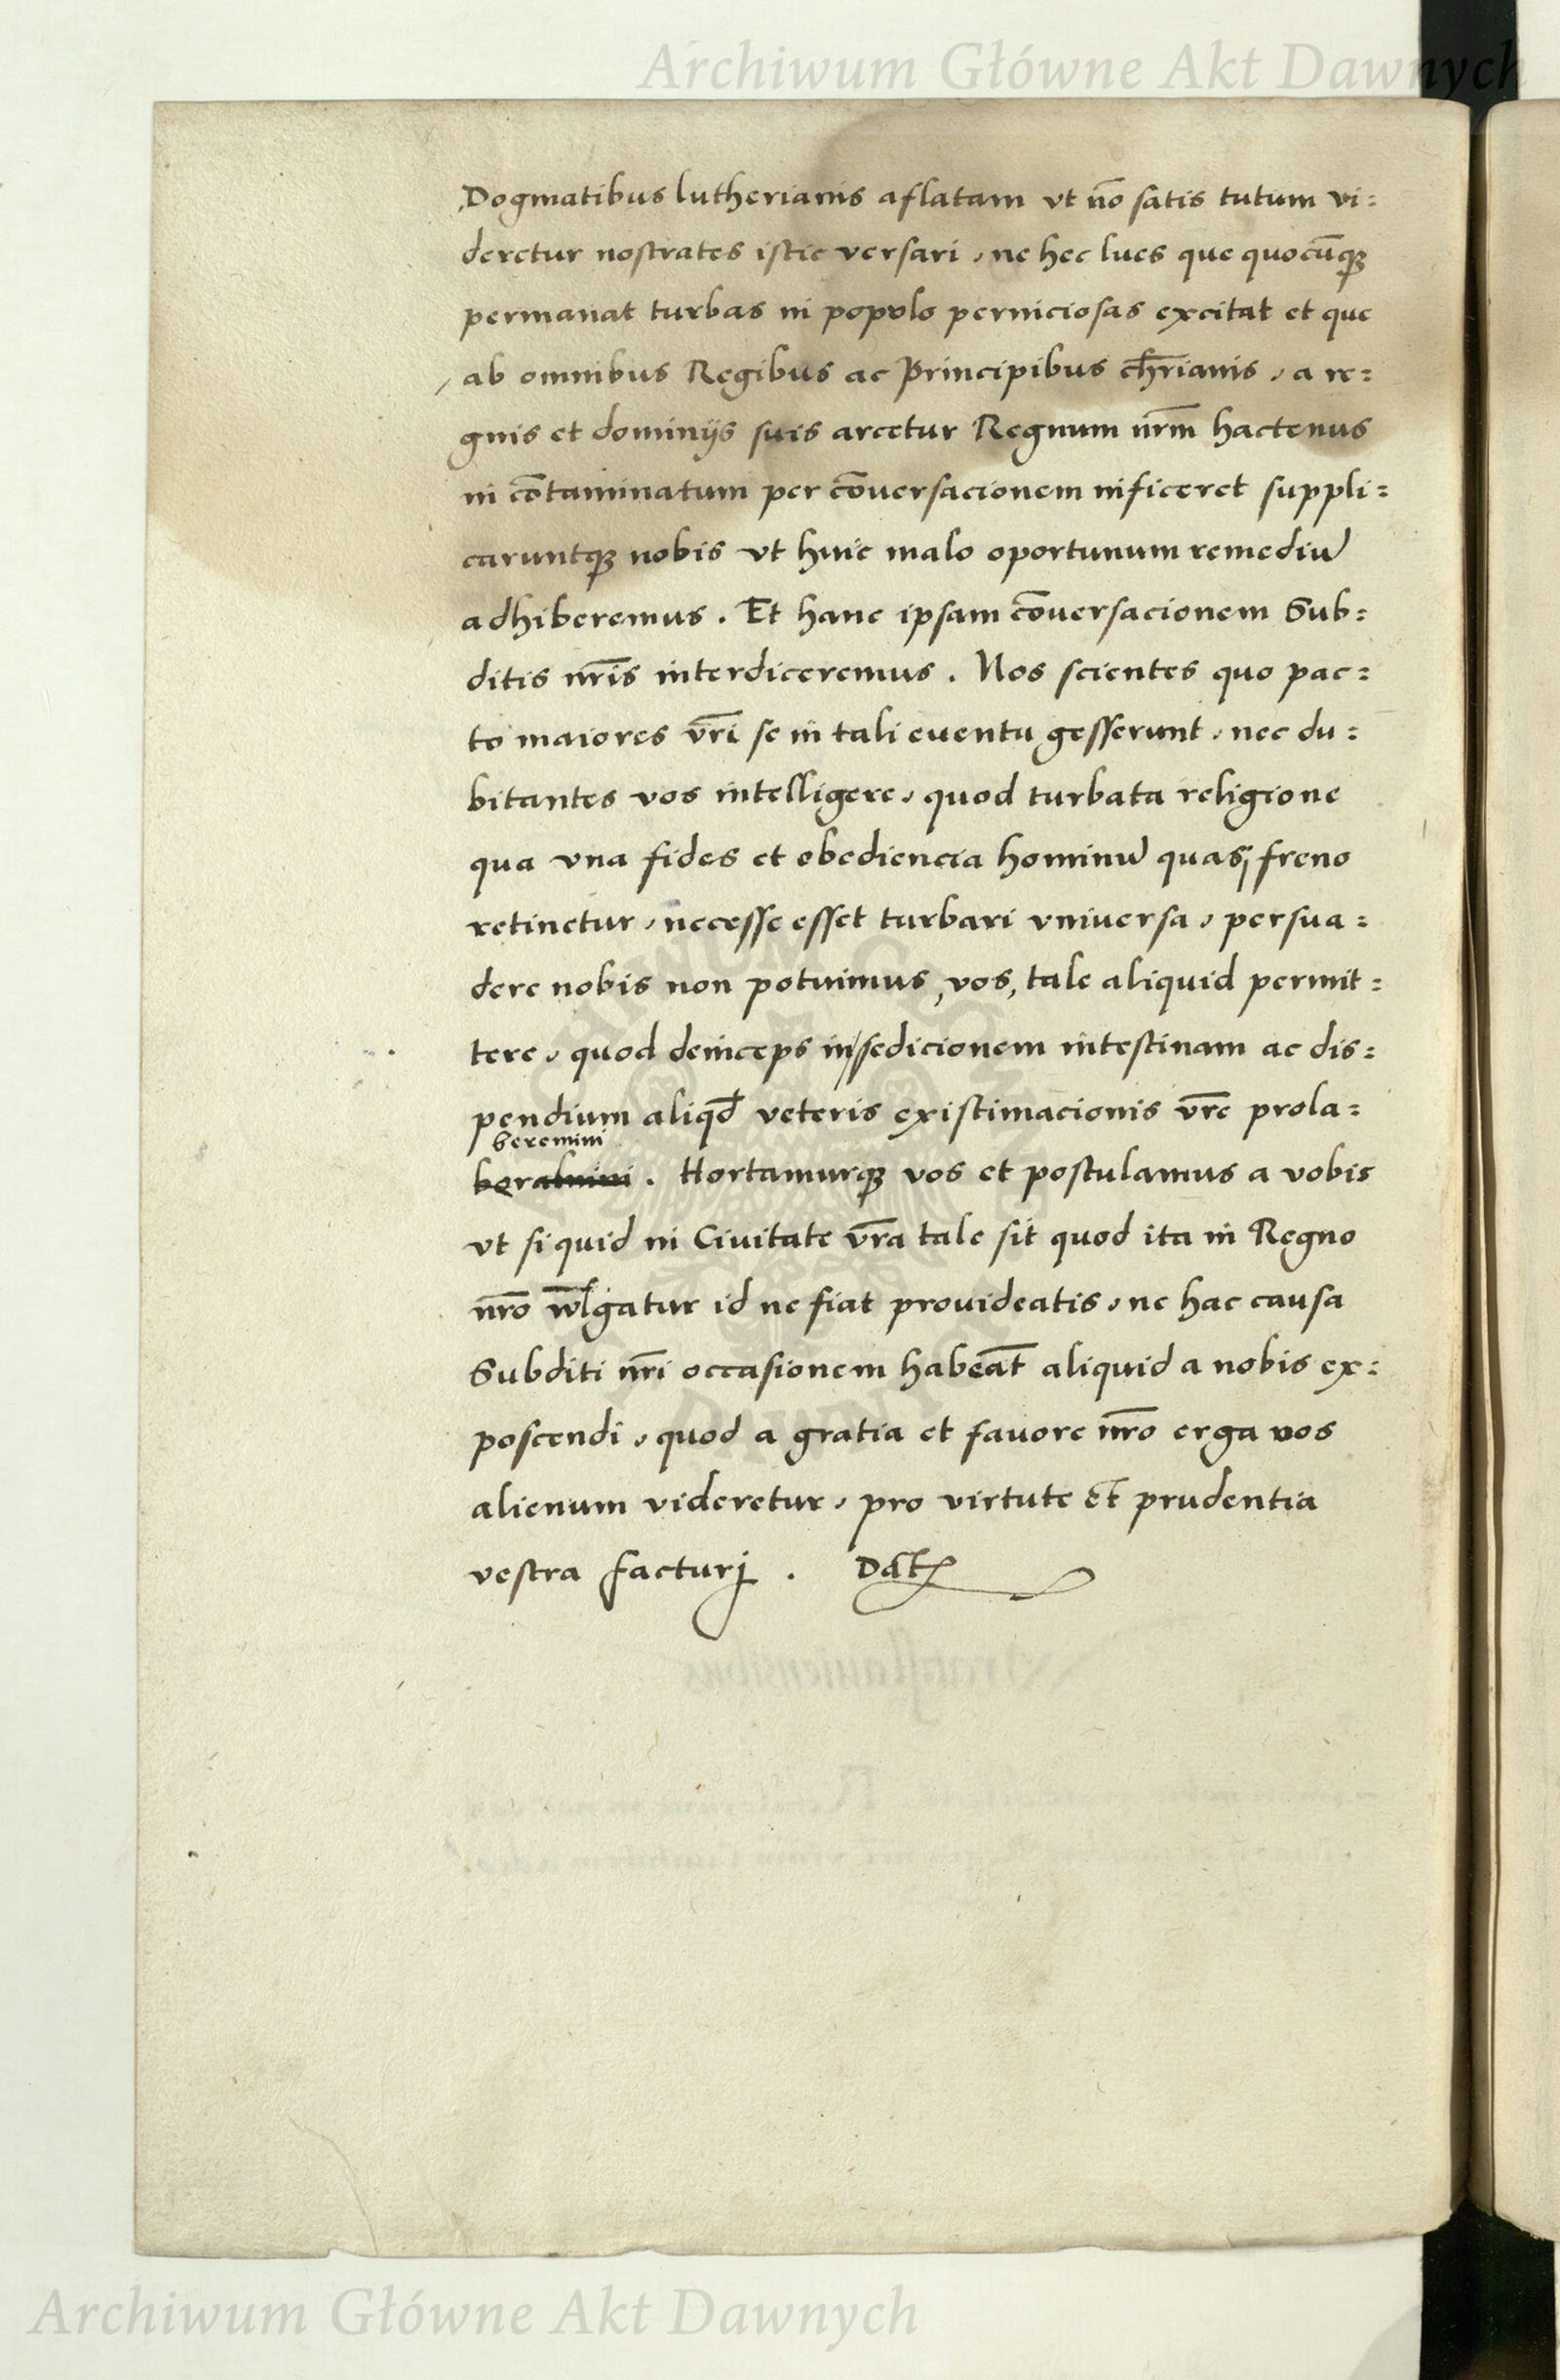 Archiwum Główne Akt Dawnych
Dogmatibus lutherianis aflatam vt nõ satis tutum vi=
deretur nostrates istic versari, ne hec lues que quocũqꝫ
permanat turbas in popvlo perniciosas excitat et que
ab omnibus Regibus ac principibus chr̃ianis, a re=
gnis et dominijs suis arcetur Regnum nr̃m hactenus
in cõtaminatum per cõuersacionem inficeret suppli=
caruntqꝫ nobis vt huic malo oportunum remediũ
adhiberemus. Et hanc ipsam cõuersacionem Sub=
ditis nr̃is interdiceremus. Nos scientes quo pac=
to maiores vr̃i se in tali euentu gesserunt, nec du=
bitantes vos intelligere, quod turbata religione
qua vna fides et obediencia hominũ quasj freno
retinetur, necesse esset turbari vniuersa, persua=
dere nobis non potuimus, vos, tale aliquid permit=
tere, quod deinceps in/sedicionem intestinam ac dis=
pendium aliqđ veteris existimacionis vr̃e prola=
beremini
. Hortamurqꝫ vos et postulamus a vobis
vt si quid in Ciuitate vr̃a tale sit quod ita in Regno
nr̃o wlgatur id ne fiat prouideatis, ne hac causa
Subditi nr̃i occasionem habeãt aliquid a nobis ex=
poscendi, quod a gratia et fauore nr̃o erga vos
alienum videretur, pro virtute et prudentia
vestra facturj. Dat̃
Archiwum Główne Akt Dawnych